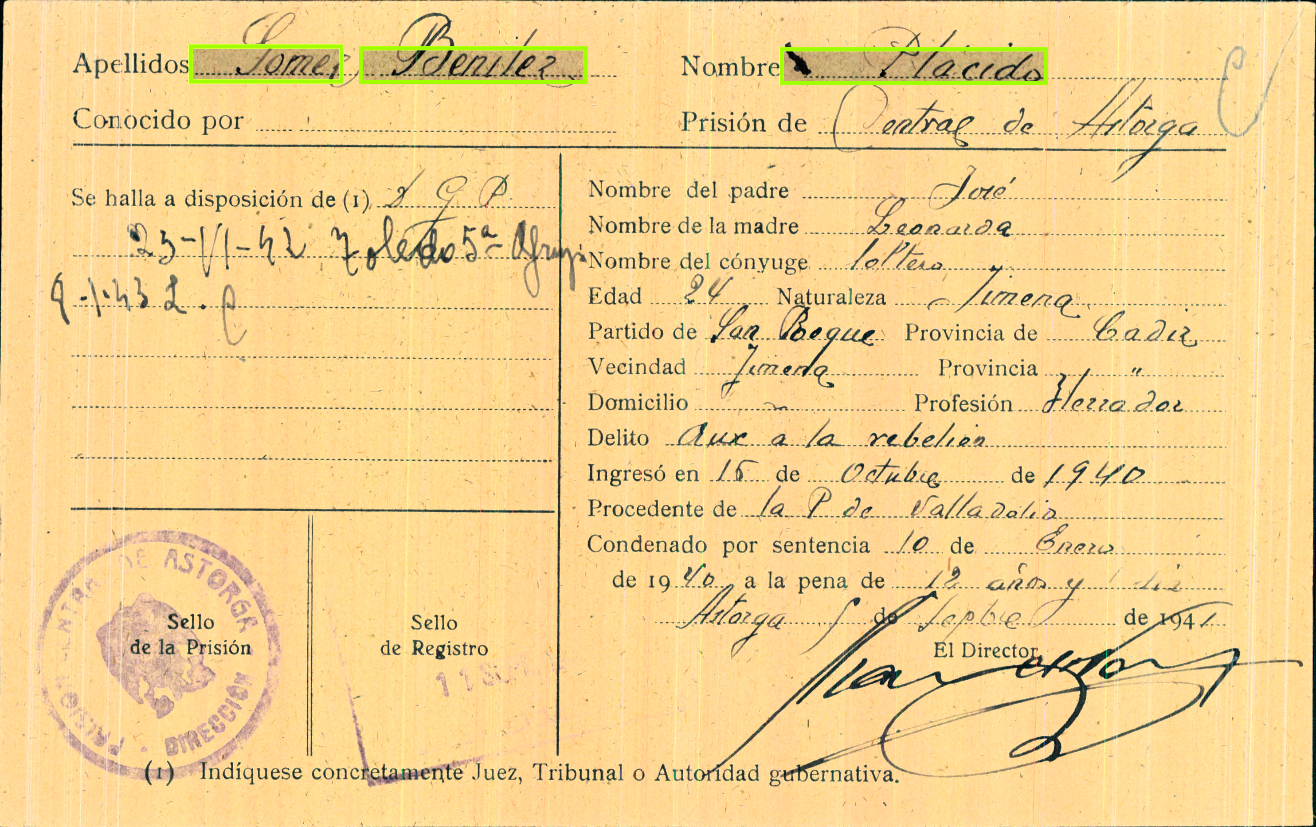 Apellidos Gomez Benitez Nombre Plácido
Conocido por Prisión de Central de Astorga
Se halla a disposición de (1) D G P
23-VI-42 Toledo 5ª Agrup
9-1-43 L. C
Nombre del padre José
Nombre de la madre Leonarda
Nombre del cónyuge soltero
Edad 24 Naturaleza Jimena
Partido de San Roque Provincia de Cadiz
Vecindad Jimena Provincia "
Domicilio - Profesión Herrador
Delito Aux a la rebelion
Ingresó en 15 de Octubre de 1940
Procedente de la P de Valladolid
Condenado por sentencia 10 de Enero
de 1940 a la pena de 12 años y 1 dia
Astorga 5 de Sepbre de 1941
El Director,
PRISIÓN CENTRAL DE ASTORGA · DIRECCIÓN
Sello
de la Prisión
Sello
de Registro
(1) Indíquese concretamente Juez, Tribunal o Autoridad gubernativa.